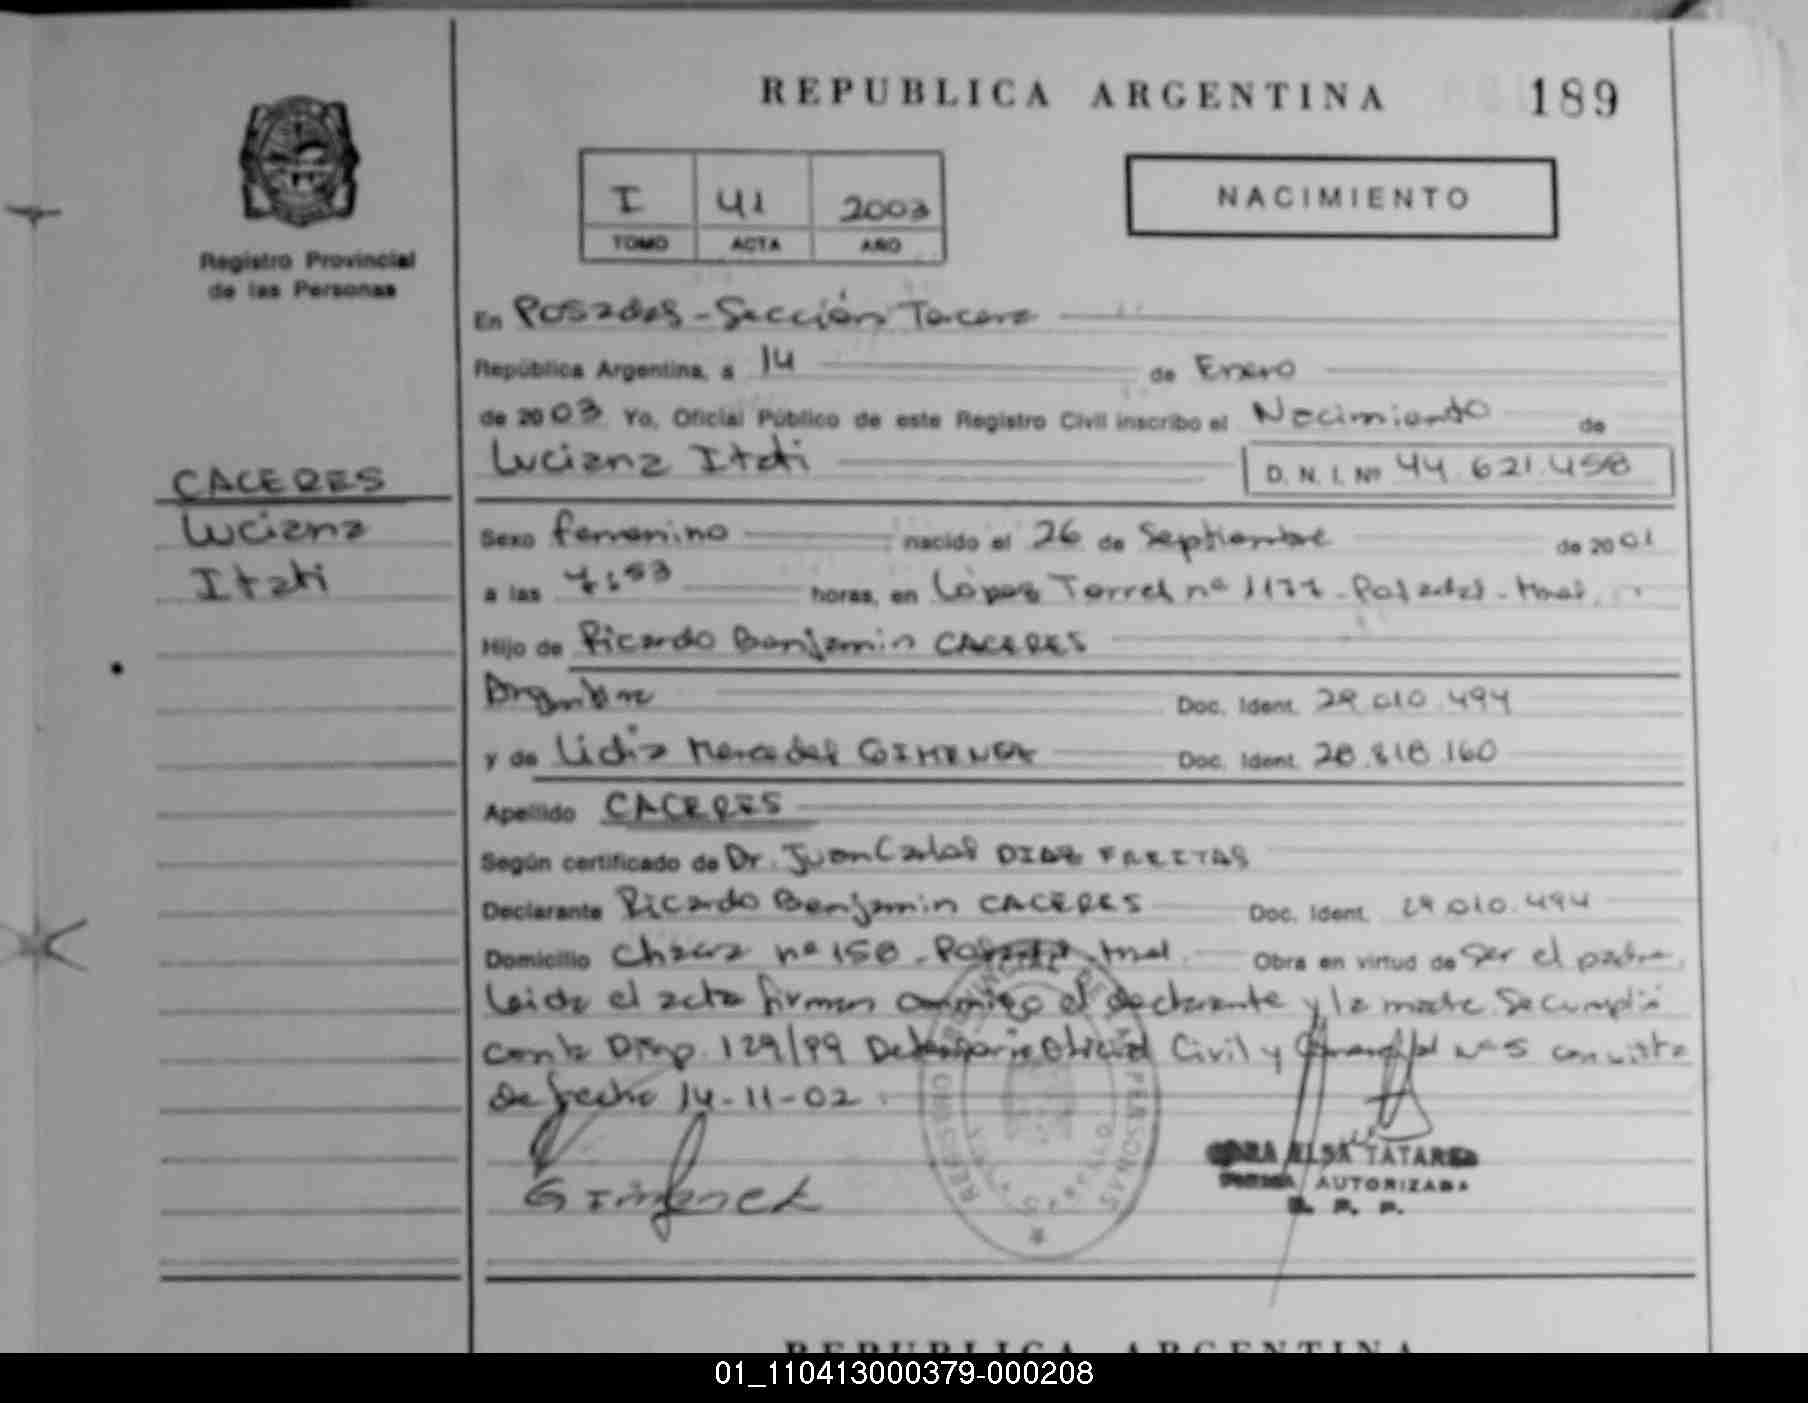 REPUBLICA ARGENTINA 189
I 41 2003
TOMO ACTA AÑO
NACIMIENTO
Registro Provincial
de las Personas
En Posadas - Sección Tercera
República Argentina, a 14 de Enero
de 2003 Yo, Oficial Público de este Registro Civil inscribo el Nacimiento de
Luciana Itati D. N. I. Nº 44.621.458
CACERES
Luciana
Itati
Sexo femenino nacido el 26 de Septiembre de 2001
a las 7:53 horas, en López Torres nº 1177 - Posadas - Mnes.
Hijo de Ricardo Benjamin CACERES
Argentina Doc. Ident. 29.010.494
y de Lidia Mercedes GIMENEZ Doc. Ident. 28.818.160
Apellido CACERES
Según certificado de Dr. Juan Carlos DIAZ FREITAS
Declarante Ricardo Benjamin CACERES Doc. Ident. 29.010.494
Domicilio Chacra nº 158 - Posadas - Mnes. Obra en virtud de ser el padre.
Leida el acta firman conmigo el declarante y la madre. Se cumplió
con la Disp. 129/99 Defensoria Oficial Civil y Nº 5 con vista
de fecha 14-11-02.
Gimenez
REGISTRO PROVINCIAL DE LAS PERSONAS
ELSA TATAREN
AUTORIZADA
R. P. P.
REPUBLICA ARGENTINA
01_110413000379-000208